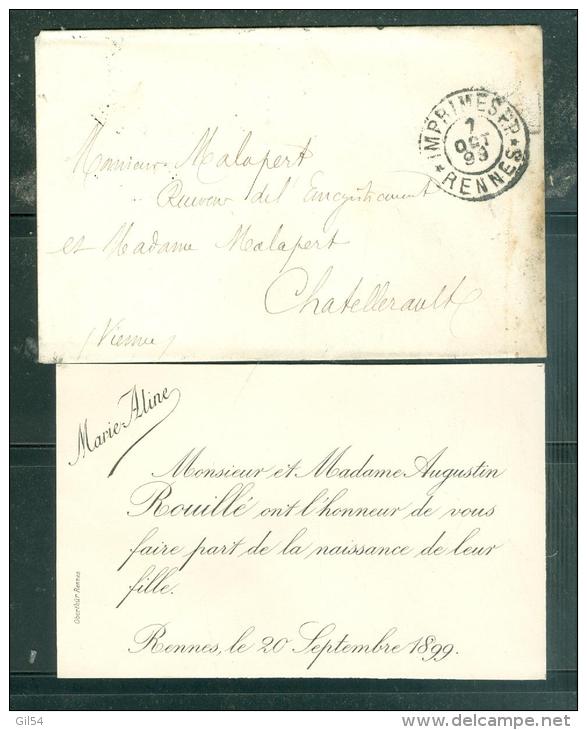 IMPRIMES PP
7
OCT
99
RENNES
Monsieur Malapert
Receveur de l'Enregistrement
et Madame Malapert
Chatellerault
(Vienne)
Marie-Aline
Monsieur et Madame Augustin
Rouillé ont l'honneur de vous
faire part de la naissance de leur
fille.
Rennes, le 20 Septembre 1899.
Oberthür-Rennes
Gil54
delcampe.net